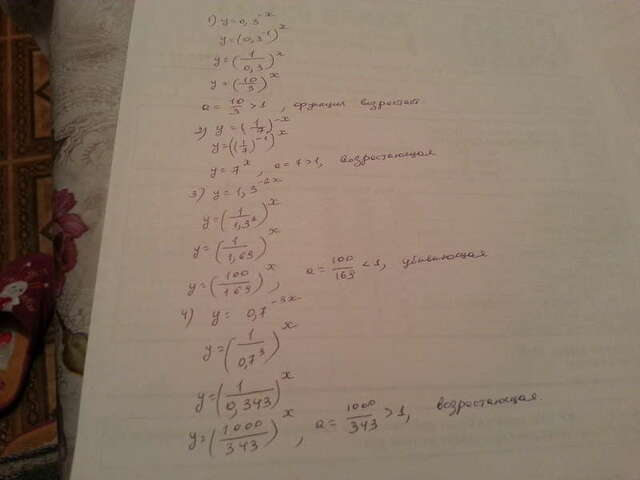 1) y = 0,3^{-x}
y = (0,3^{-1})^x
y = (1/0,3)^x
y = (10/3)^x
a = 10/3 > 1 , функция возрастает
2) y = (1/7)^{-x}
y = ((1/7)^{-1})^x
y = 7^x , a = 7 > 1, возростающая
3) y = 1,3^{-2x}
y = (1/1,3^2)^x
y = (1/1,63)^x
y = (100/163)^x , a = 100/163 < 1, убивающая
4) y = 0,7^{-3x}
y = (1/0,7^3)^x
y = (1/0,343)^x
y = (1000/343)^x , a = 1000/343 > 1, возростающая.